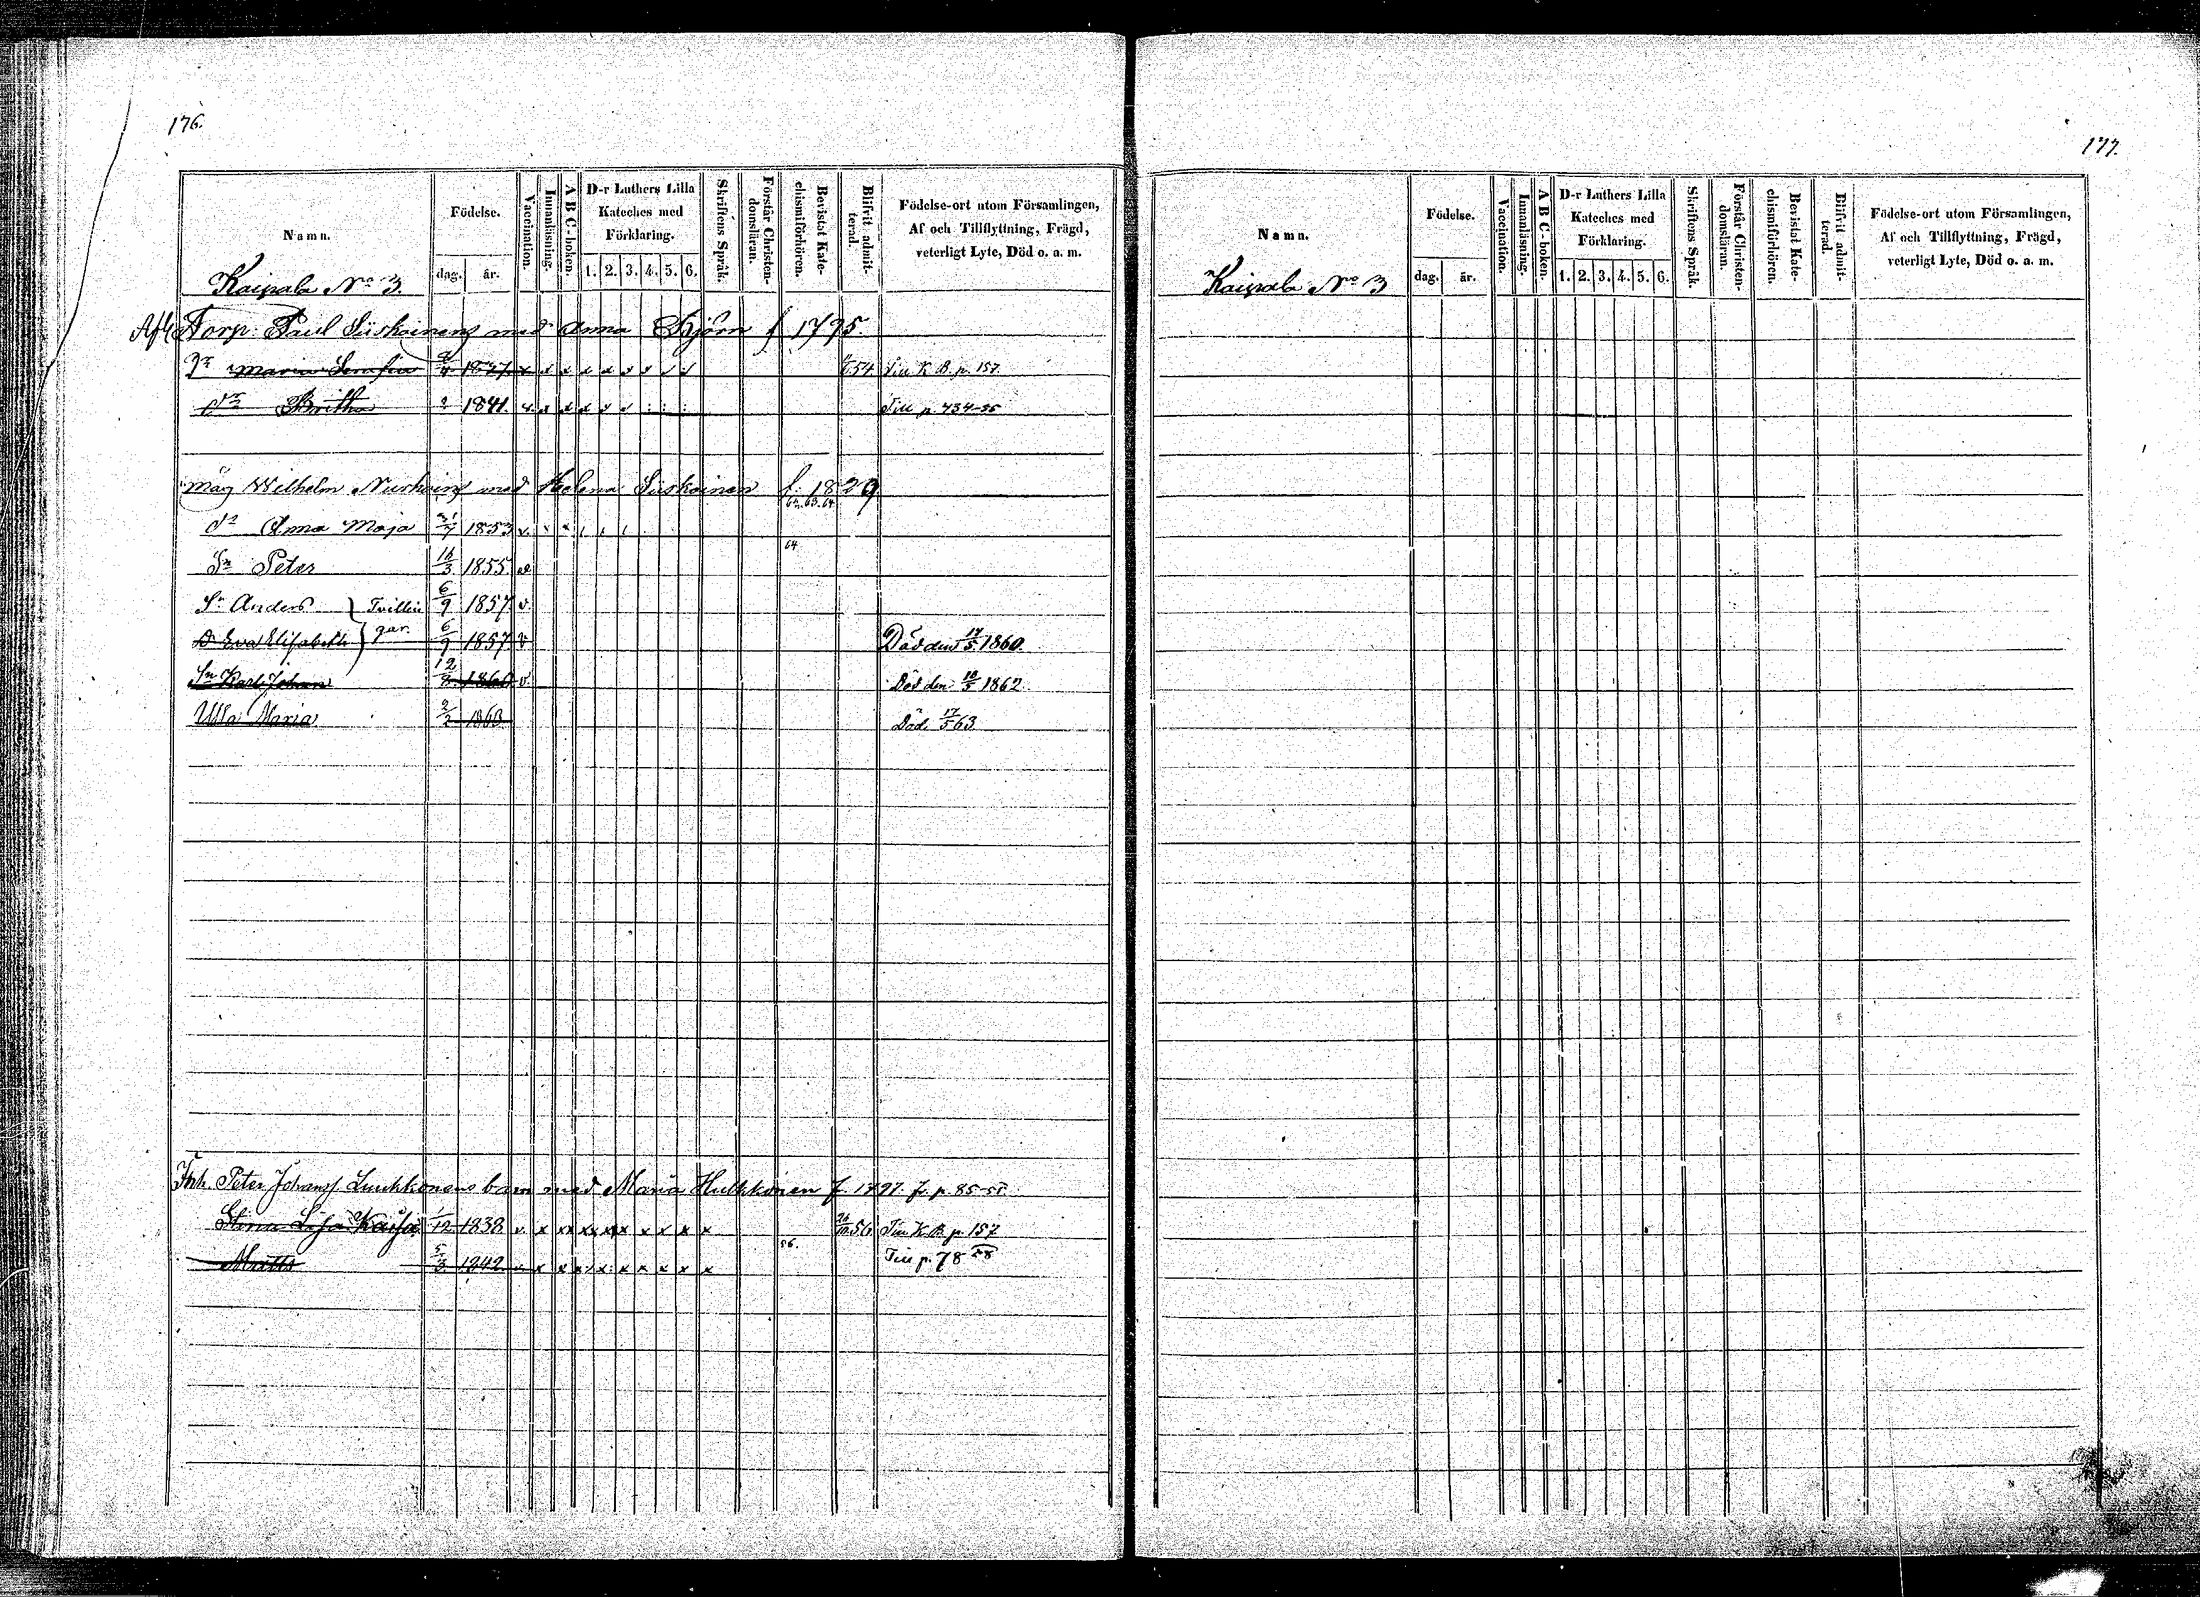 176.
Namn.
Födelse.
dag. år.
Vaccination.
Innanläsning.
A B C-boken.
D-r Luthers Lilla Kateches med Förklaring.
1. 2. 3. 4. 5. 6.
Skriftens Språk.
Förstår Christendomsläran.
Bevistat Katechismiförhören.
Blifvit admitterad.
Födelse-ort utom Församlingen,
Af och Tillflyttning, Frägd,
veterligt Lyte, Död o. a. m.
Kaipala No 3.
Torp. Paul Siiskoinens med Anna Björn f 1795.
Dr Maria Serafia 1827. 54 Till K B. p. 157.
dr Britha 1841. Till p. 434-35
måg Wilhelm Nurhoinf med Helena Siiskoinen f. 1829
62. 63. 64
dr Anna Maja 1853 v.
64
Sn Peter 16/3 1855
Sn Anders } Tvillin 6/9 1857 v.
D Eva Elisabeth } gar. 6/9 1857 v Död den 17/5 1860.
Sn Karl Johan 12/8 1860 v. Död den 18/5 1862
Ulla Maria 2/2 1863 Död. 17/5 63
Inh. Peter Johansf. Luukkonens barn med Maria Hulkkonen f. 1797. fr. p. 85-55
Stina Lisa Kaisa 1/12 1838 v. x xx x x x x x x 56 Till K. B. p. 157
56.
Matts 5/3 1842 Till p. 78 58
177.
Namn.
Födelse.
dag. år.
Vaccination.
Innanläsning.
A B C-boken.
D-r Luthers Lilla Kateches med Förklaring.
1. 2. 3. 4. 5. 6.
Skriftens Språk.
Förstår Christendomsläran.
Bevistat Katechismiförhören.
Blifvit admitterad.
Födelse-ort utom Församlingen,
Af och Tillflyttning, Frägd,
veterligt Lyte, Död o. a. m.
Kaipala No 3